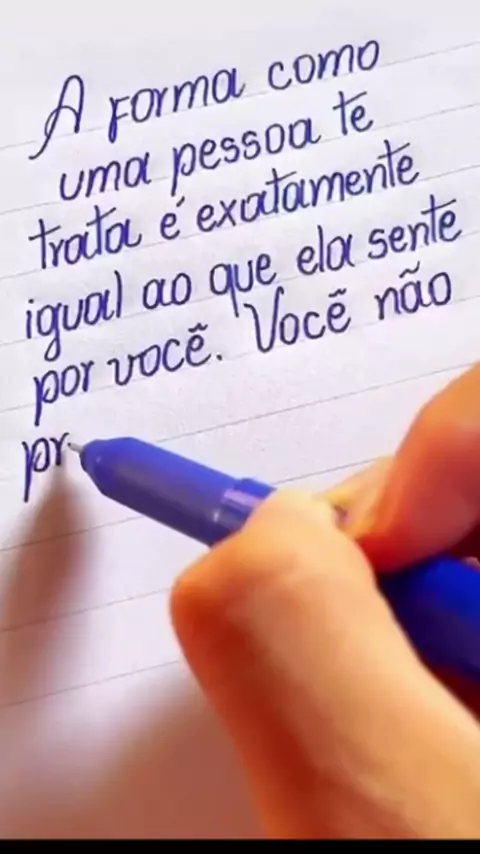 A forma como
uma pessoa te
trata é exatamente
igual ao que ela sente
por você. Você não
pr